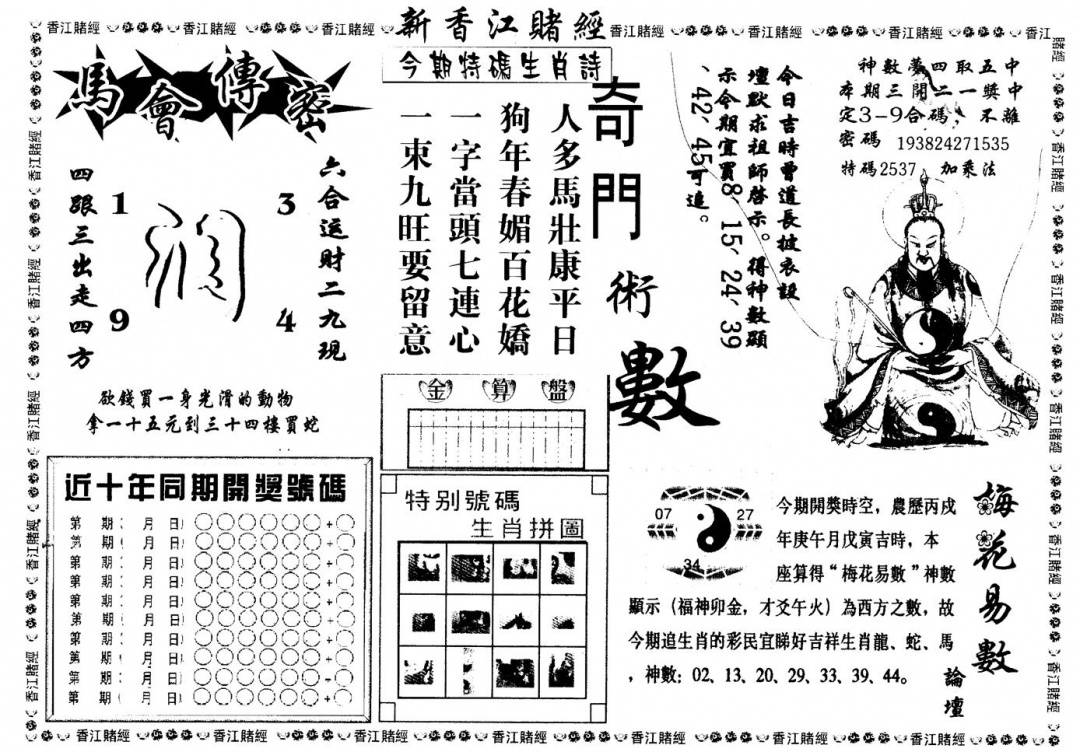 新香江賭經
馬會傳密
四跟三出走四方
六合运财二九現
1
3
9
4
欲錢買一身光滑的動物
拿一十五元到三十四樓買蛇
近十年同期開獎號碼
第 期 月 日 +
第 期 月 日 +
第 期 月 日 +
第 期 月 日 +
第 期 月 日 +
第 期 月 日 +
第 期 月 日 +
第 期 月 日 +
第 期 月 日 +
第 期 月 日 +
今期特碼生肖詩
人多馬壯康平日
狗年春媚百花嬌
一字當頭七連心
一束九旺要留意
金算盤
特别號碼
生肖拼圖
奇門術數
今日吉時曾道長披衣設
壇默求祖師啓示。得神數顯
示今期宜買8、15、24、39
、42、45可追。
神數夢四取五中
本期三開二一獎中
定3-9合碼 不離
密碼 193824271535
特碼2537 加乘法
07
27
34
梅花易數
論壇
今期開獎時空，農歷丙戍
年庚午月戊寅吉時，本
座算得“梅花易數”神數
顯示（福神卯金，才爻午火）為西方之數，故
今期追生肖的彩民宜睇好吉祥生肖龍、蛇、馬
，神數：02、13、20、29、33、39、44。
香江賭經